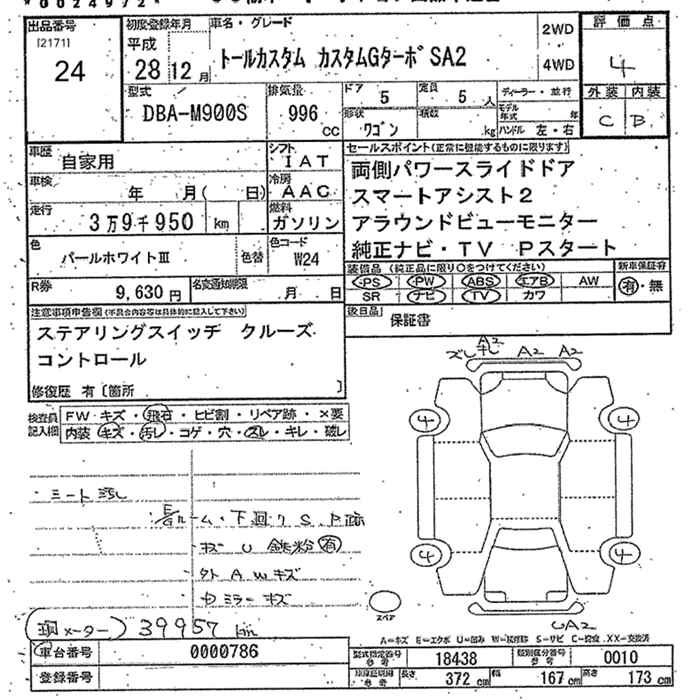 *0024972*
出品番号
[2171]
24
初度登録年月
平成
28 12月
車名・グレード
トールカスタム カスタムGターボ SA2
2WD
4WD
評価点
4
外装 内装
C B
型式
DBA-M900S
排気量
996 CC
ドア
5
定員
5 人
形状
ワゴン
積数
kg
ディーラー・並行
モデル年式 年
ハンドル 左・右
車歴
自家用
シフト
IAT
車検
年 月( 日)
冷房
AAC
走行
3万9千950 km
燃料
ガソリン
色
パールホワイトⅢ
色替
色コード
W24
R券
9,630円
名変通知期限
月 日
セールスポイント(正常に機能するものに限ります)
両側パワースライドドア
スマートアシスト2
アラウンドビューモニター
純正ナビ・TV Pスタート
装備品 (純正品に限り○をつけてください)
PS PW ABS エアB AW
SR ナビ TV カワ
新車保証有
有・無
後日品
保証書
注意事項申告欄(不具合内容等は具体的に記入して下さい)
ステアリングスイッチ クルーズ
コントロール
修復歴 有〔箇所 〕
検査員記入欄
FW キズ・飛石・ヒビ割・リペア跡・×要
内装 キズ・汚レ・コゲ・穴・スレ・キレ・破レ
・シート汚レ
・下廻り S.P跡
キズ U 鉄粉 有
外 A W キズ
ミラーキズ
メーター) 39957 km
A2
A2 A2
4 4
4 4
スペア
UA2
A=キズ E=エクボ U=凹み W=補修跡 S=サビ C=腐食 XX=交換済
車台番号
0000786
登録番号
型式指定番号
参考
18438
類別区分番号
参考
0010
参考
長さ 372 cm
幅 167 cm
高さ 173 cm